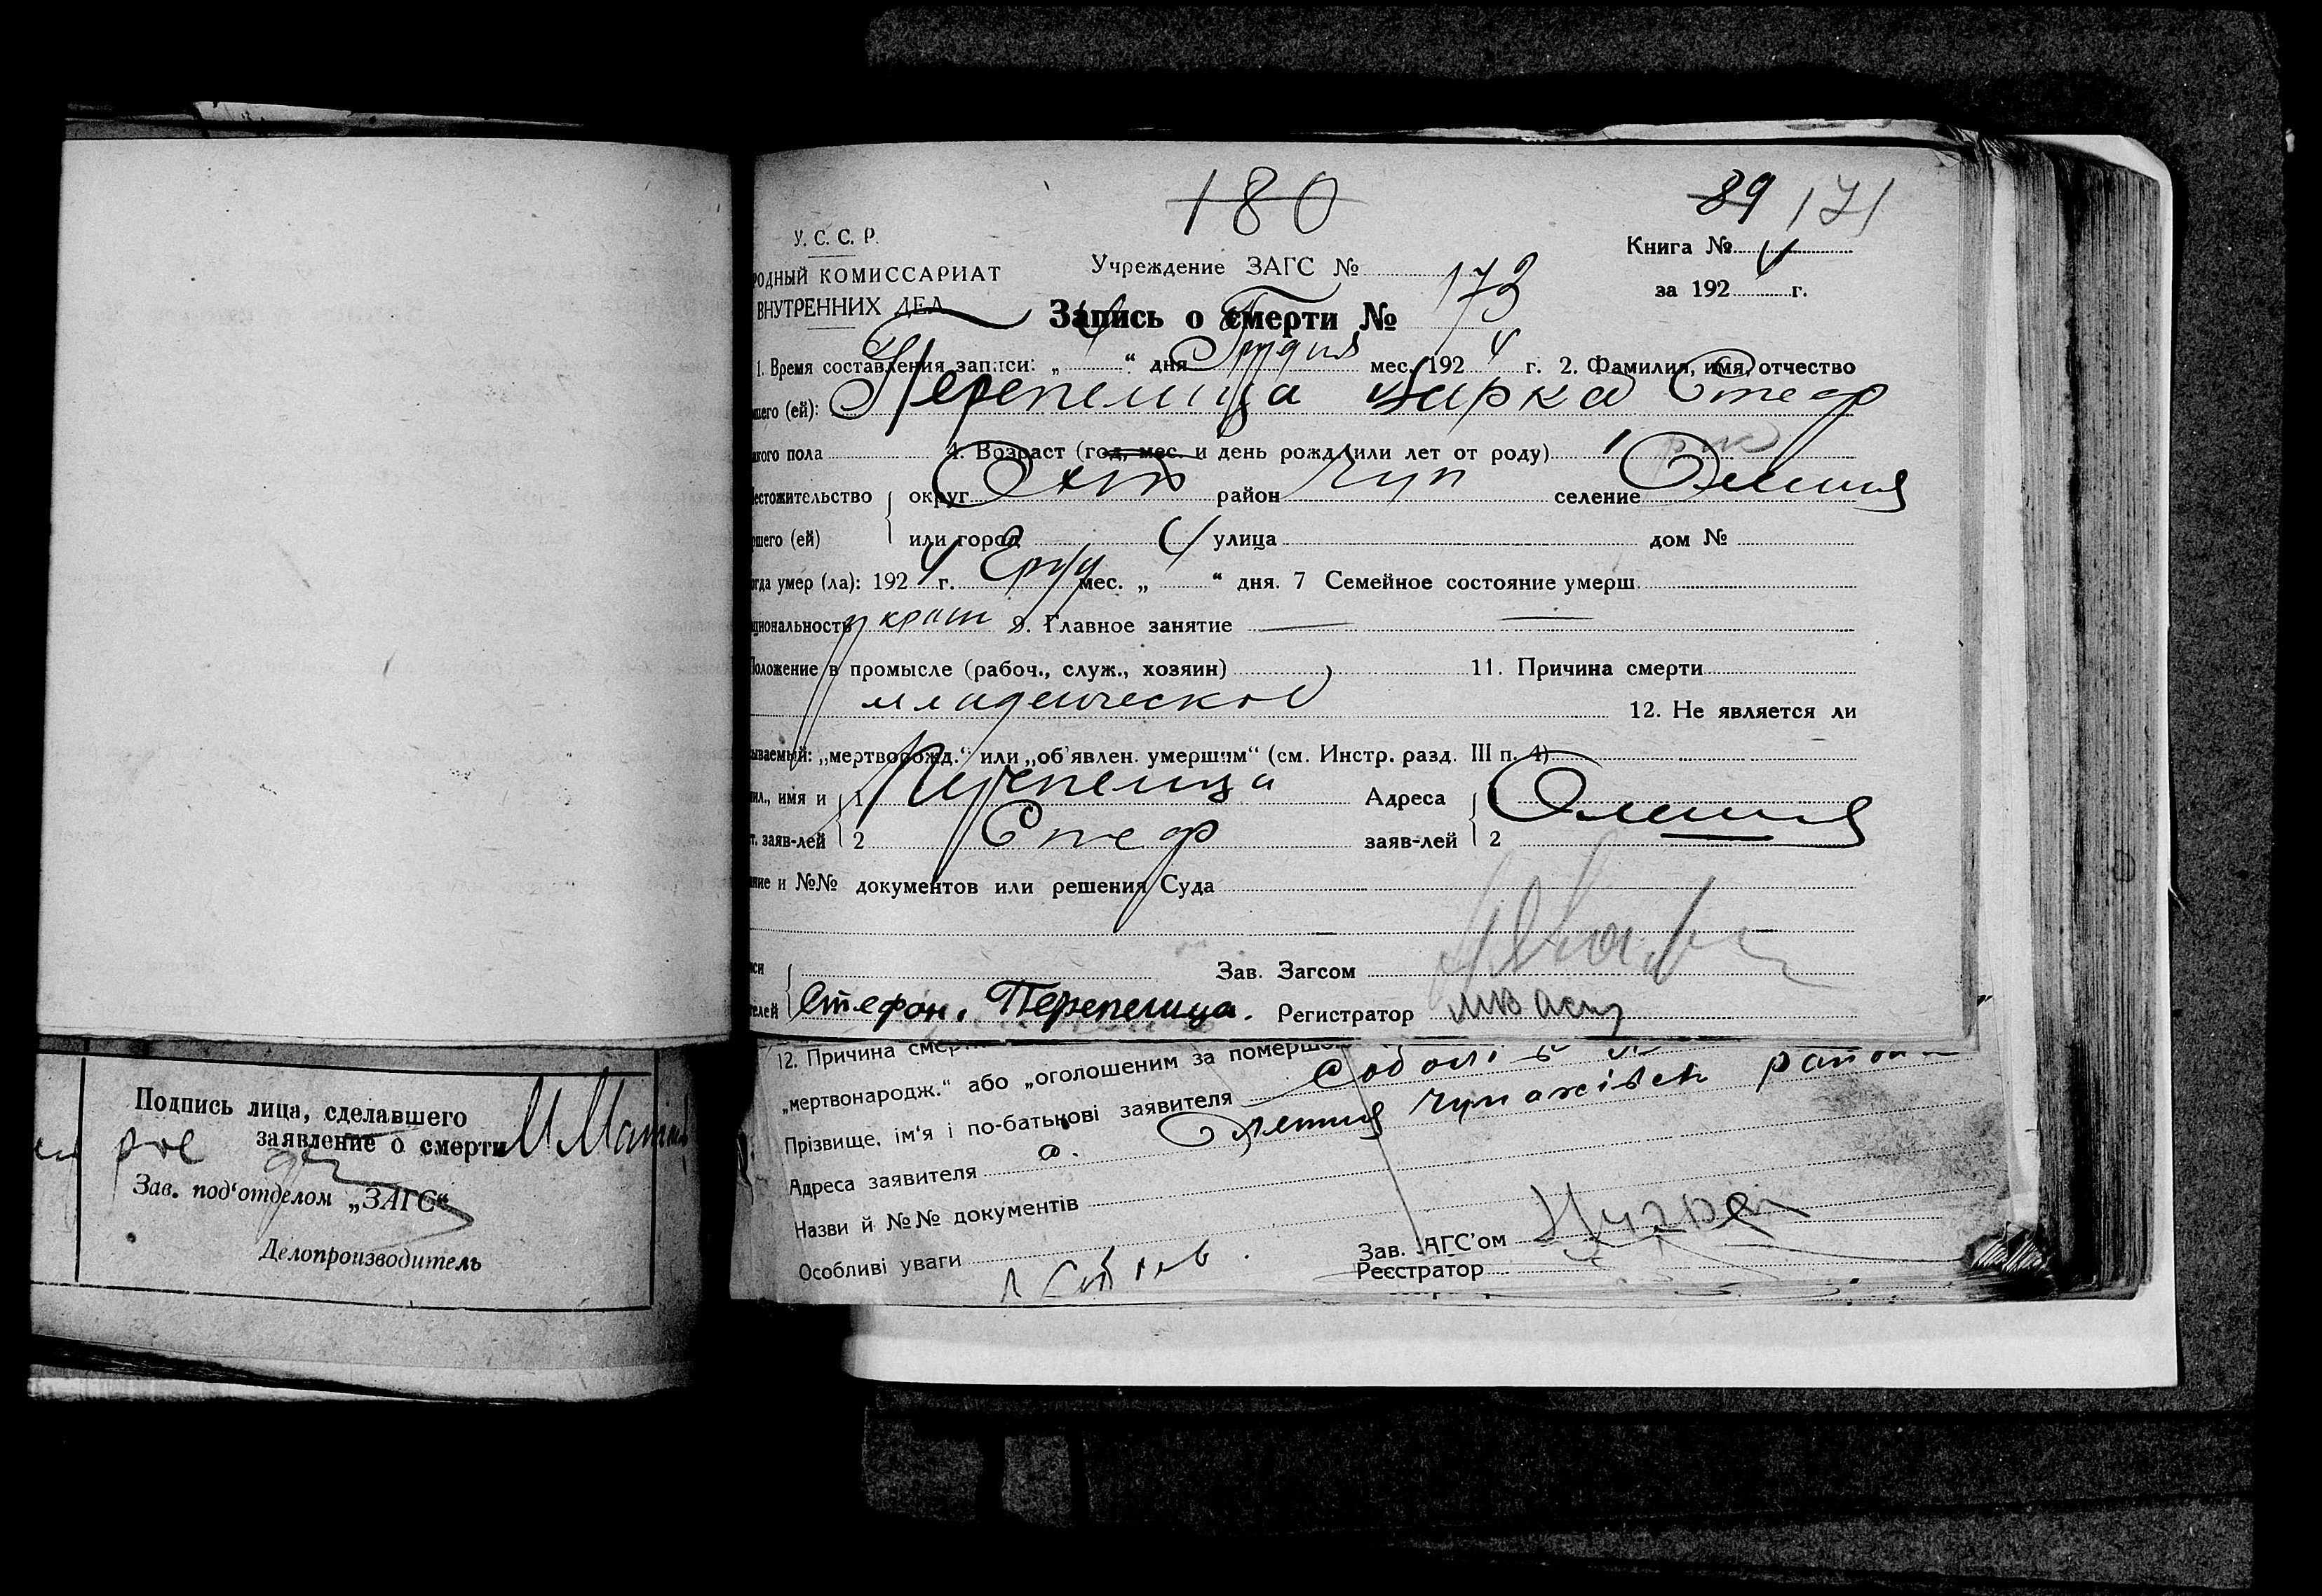 180
89 171
У. С. С. Р.
Книга №
РОДНЫЙ КОМИССАРИАТ
Учреждение ЗАГС №
за 192 г.
ВНУТРЕННИХ ДЕЛ
Запись о смерти № 173
1. Время составления записи: „ “ дня Грудня мес. 1924 г. 2. Фамилия, имя, отчество
шего (ей): Перепелица Варка Стеф
кого пола 4. Возраст (год, мес. и день рожд. или лет от роду) 1 рік
естожительство округ Охт район Чуп селение Олешня
шего (ей) или город улица дом №
огда умер (ла): 1924 г. Груд мес. „ “ дня. 7 Семейное состояние умерш.
циональность украин 9. Главное занятие
Положение в промысле (рабоч., служ., хозяин) 11. Причина смерти
младенческое 12. Не является ли
ываемый: „мертворожд.“ или „об'явлен. умершим“ (см. Инстр. разд. III п. 4)
ил., имя и 1 Перепелица Адреса 1 Олешня
т. заяв-лей 2 Стеф заяв-лей 2
ние и №№ документов или решения Суда
Зав. Загсом
телей Стефан. Перепелица. Регистратор
12. Причина смер
„мертвонародж.“ або „оголошеним за померш
Прізвище, ім'я і по-батькові заявителя
Адреса заявителя с. Олешня Чупахівськ район
Назви й №№ документів
Особливі уваги
Зав. ЗАГС'ом
Реєстратор
Подпись лица, сделавшего
заявление о смерти
Зав. под'отделом „ЗАГС“
Делопроизводитель